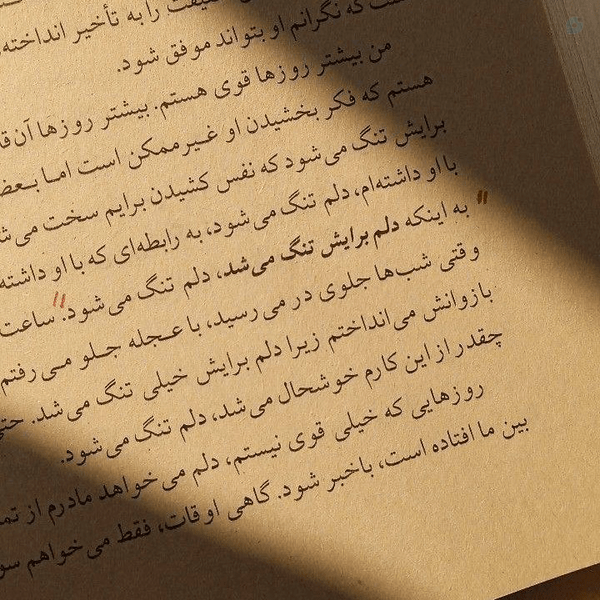 حقیقت را به تأخیر انداخته
است که نگرانم او بتواند موفق شود.
من بیشتر روزها قوی هستم. بیشتر روزها آن‌قد
هستم که فکر بخشیدن او غیرممکن است اما بعض
برایش تنگ می‌شود که نفس کشیدن برایم سخت می‌ش
با او داشته‌ام، دلم تنگ می‌شود، به رابطه‌ای که با او داشته
به اینکه دلم برایش تنگ می‌شد، دلم تنگ می‌شود." ساعت
وقتی شب‌ها جلوی در می‌رسید، با عجله جلو می‌رفتم
بازوانش می‌انداختم زیرا دلم برایش خیلی تنگ می‌شد. حتی
چقدر از این کارم خوشحال می‌شد، دلم تنگ می‌شود.
روزهایی که خیلی قوی نیستم، دلم می‌خواهد مادرم از تم
بین ما افتاده است، باخبر شود. گاهی اوقات، فقط می‌خواهم سو